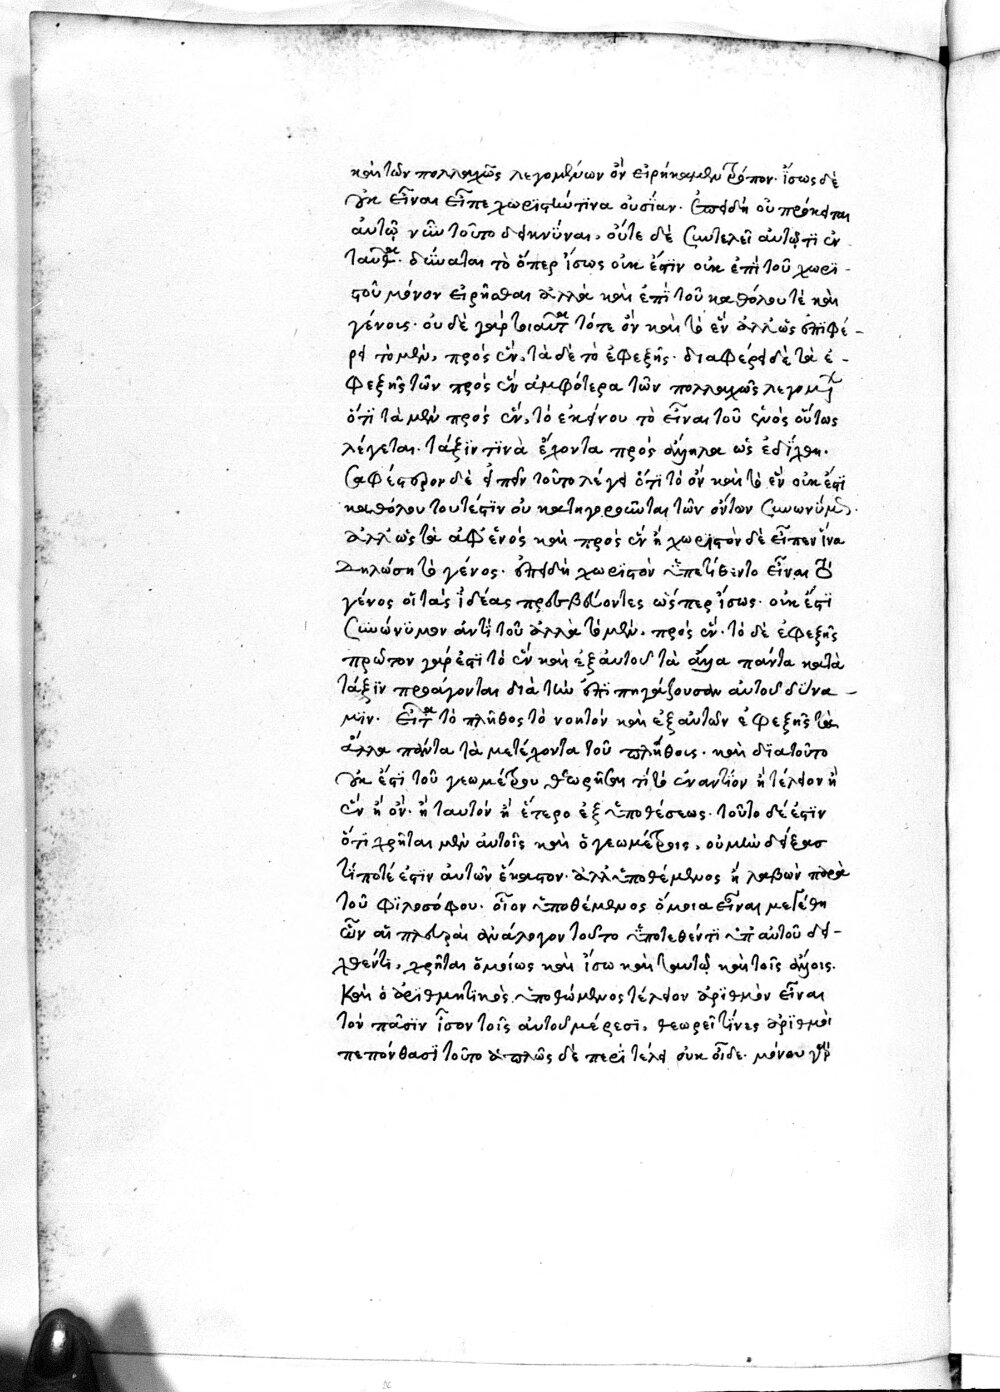 καὶ τῶν πολλαχῶς λεγομένων ὃν εἰρήκαμεν τρόπον· ἴσως δὲ
οὐκ εἶναι εἶπε χωριστήν τινα οὐσίαν. ἐπειδὴ οὐ πρόκειται
αὐτῷ νῦν τοῦτο δεικνύναι, οὔτε δὲ συντελεῖ αὐτῷ τι ἐν
ταῦθα. δύναται τὸ ὅπερ ἴσως οὐκ ἔστιν οὐκ ἐπὶ τοῦ χωρι-
στοῦ μόνον εἰρῆσθαι ἀλλὰ καὶ ἐπὶ τοῦ καθόλου τὲ καὶ
γένους· οὐδὲ γὰρ τοιαῦτα τότε ὂν καὶ τὸ ἓν ἀλλ' ὡς ἐπιφέ-
ρει τὸ μὲν, πρὸς ἓν, τὰ δὲ τὸ ἐφεξῆς· διαφέρει δὲ τὰ ἐ-
φεξῆς τῶν πρὸς ἓν ἀμφότερα τῶν πολλαχῶς λεγομένων
ὅτι τὰ μὲν πρὸς ἓν, τὸ ἐκείνου τὸ εἶναι τοῦ ἑνὸς οὕτως
λέγεται· τάξιν τινὰ ἔχοντα πρὸς ἄλληλα ὡς ἐδείχθη.
σαφέστερον δὲ εἰπεῖν τοῦτο λέγει ὅτι τὸ ὂν καὶ τὸ ἓν οὐκ ἔστι
καθόλου τουτέστιν οὐ κατηγοροῦνται τῶν ὄντων συνωνύμως.
ἀλλ' ὡς τὰ ἀφ' ἑνὸς καὶ πρὸς ἓν ἢ χωριστὸν δὲ εἶπεν ἵνα
δηλώσῃ τὸ γένος· ἐπειδὴ χωριστὸν ὑπετίθεντο εἶναι τὸ
γένος οἱ τὰς ἰδέας πρεσβεύοντες ὥσπερ ἴσως· οὐκ ἔστι
συνώνυμον ἀντὶ τοῦ ἀλλὰ τὸ μὲν, πρὸς ἓν· τὸ δὲ ἐφεξῆς
πρῶτον γάρ ἐστι τὸ ἓν καὶ ἐξ αὐτοῦ τὰ ἄλλα πάντα κατὰ
τάξιν προάγονται διὰ τὴν ἐπιπηγάζουσαν αὐτοῦ δύνα-
μιν· εἶτα τὸ πλῆθος τὸ νοητὸν καὶ ἐξ αὐτῶν ἐφεξῆς τὰ
ἄλλα πάντα τὰ μετέχοντα τοῦ πλήθους· καὶ διατοῦτο
οὐκ ἔστι τοῦ γεωμέτρου θεωρῆσαι τί τὸ ἐναντίον ἢ τέλειον ἢ
ἓν ἢ ὂν· ἢ ταυτὸν ἢ ἕτερο ἐξ ὑποθέσεως· τοῦτο δέ ἐστιν
ὅτι χρῆται μὲν αὐτοῖς καὶ ὁ γεωμέτρης, οὐ μὴν δείξας
τί ποτέ ἐστιν αὐτῶν ἕκαστον· ἀλλ' ὑποθέμενος ἢ λαβὼν παρὰ
τοῦ φιλοσόφου· οἷον ὑποθέμενος ὅμοια εἶναι μεγέθη
ὧν αἱ πλευραὶ ἀνάλογον τούτο ὑποτεθέντι ὑπ' αὐτοῦ δει-
χθέντι, χρῆται ὁμοίως καὶ ἴσω καὶ ταυτῷ καὶ τοῖς ἄλλοις.
Καὶ ὁ ἀριθμητικὸς ὑποθέμενος τέλειον ἀριθμὸν εἶναι
τὸν πᾶσιν ἴσον τοῖς αὐτοῦ μέρεσι, θεωρεῖ τίνες ἀριθμοὶ
πεπόνθασι τοῦτο ἁπλῶς δὲ περὶ τελεί οὐκ οἶδε· μόνου γὰρ